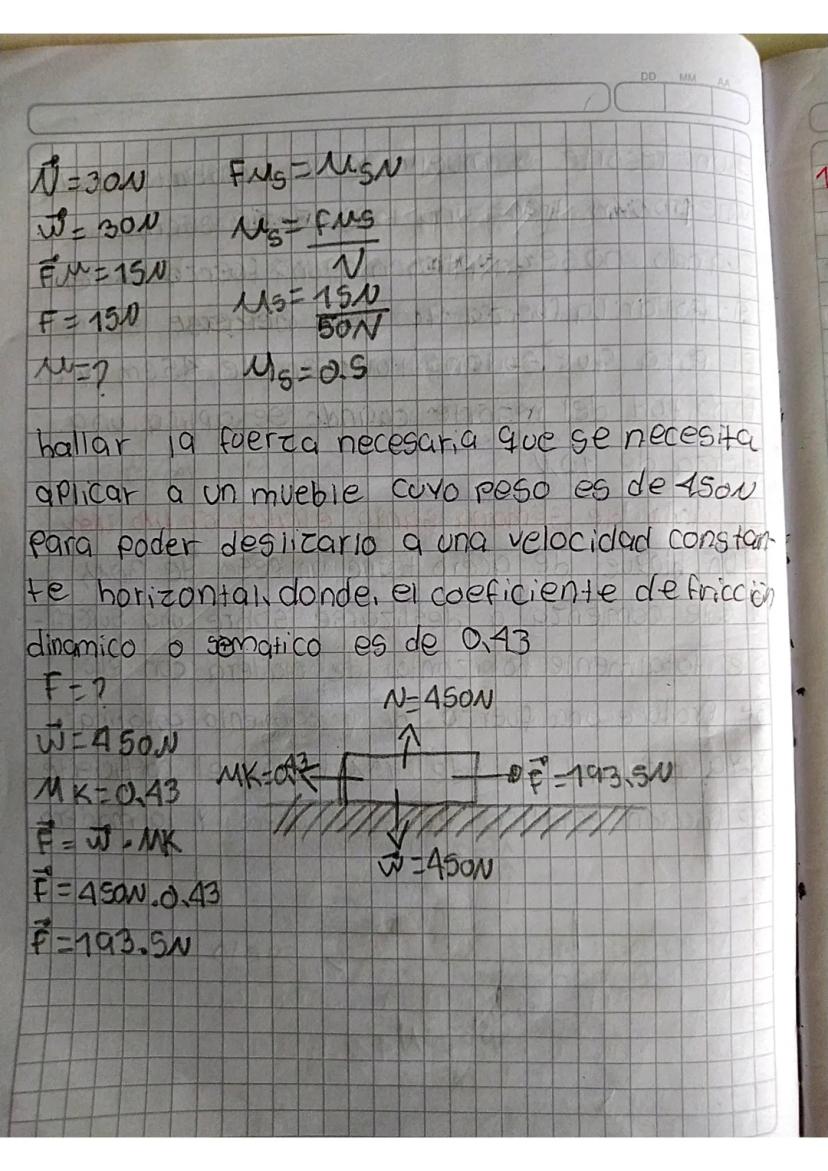 DD MM AA
N⃗=30N FMs=MsN
w⃗=30N Ms=FMs/N
F⃗M=15N
F=15N Ms=15N/50N
M=? Ms=0.5
hallar la fuerza necesaria que se necesita
aplicar a un mueble cuyo peso es de 450N
para poder deslizarlo a una velocidad constan-
te horizontal, donde, el coeficiente de fricción
dinamico o sematico es de 0,43
F=? N=450N
w⃗=450N
MK=0,43 MK=0,43 F⃗=193.5N
F⃗=w⃗.MK
w⃗=450N
F⃗=450N.0,43
F⃗=193.5N
1